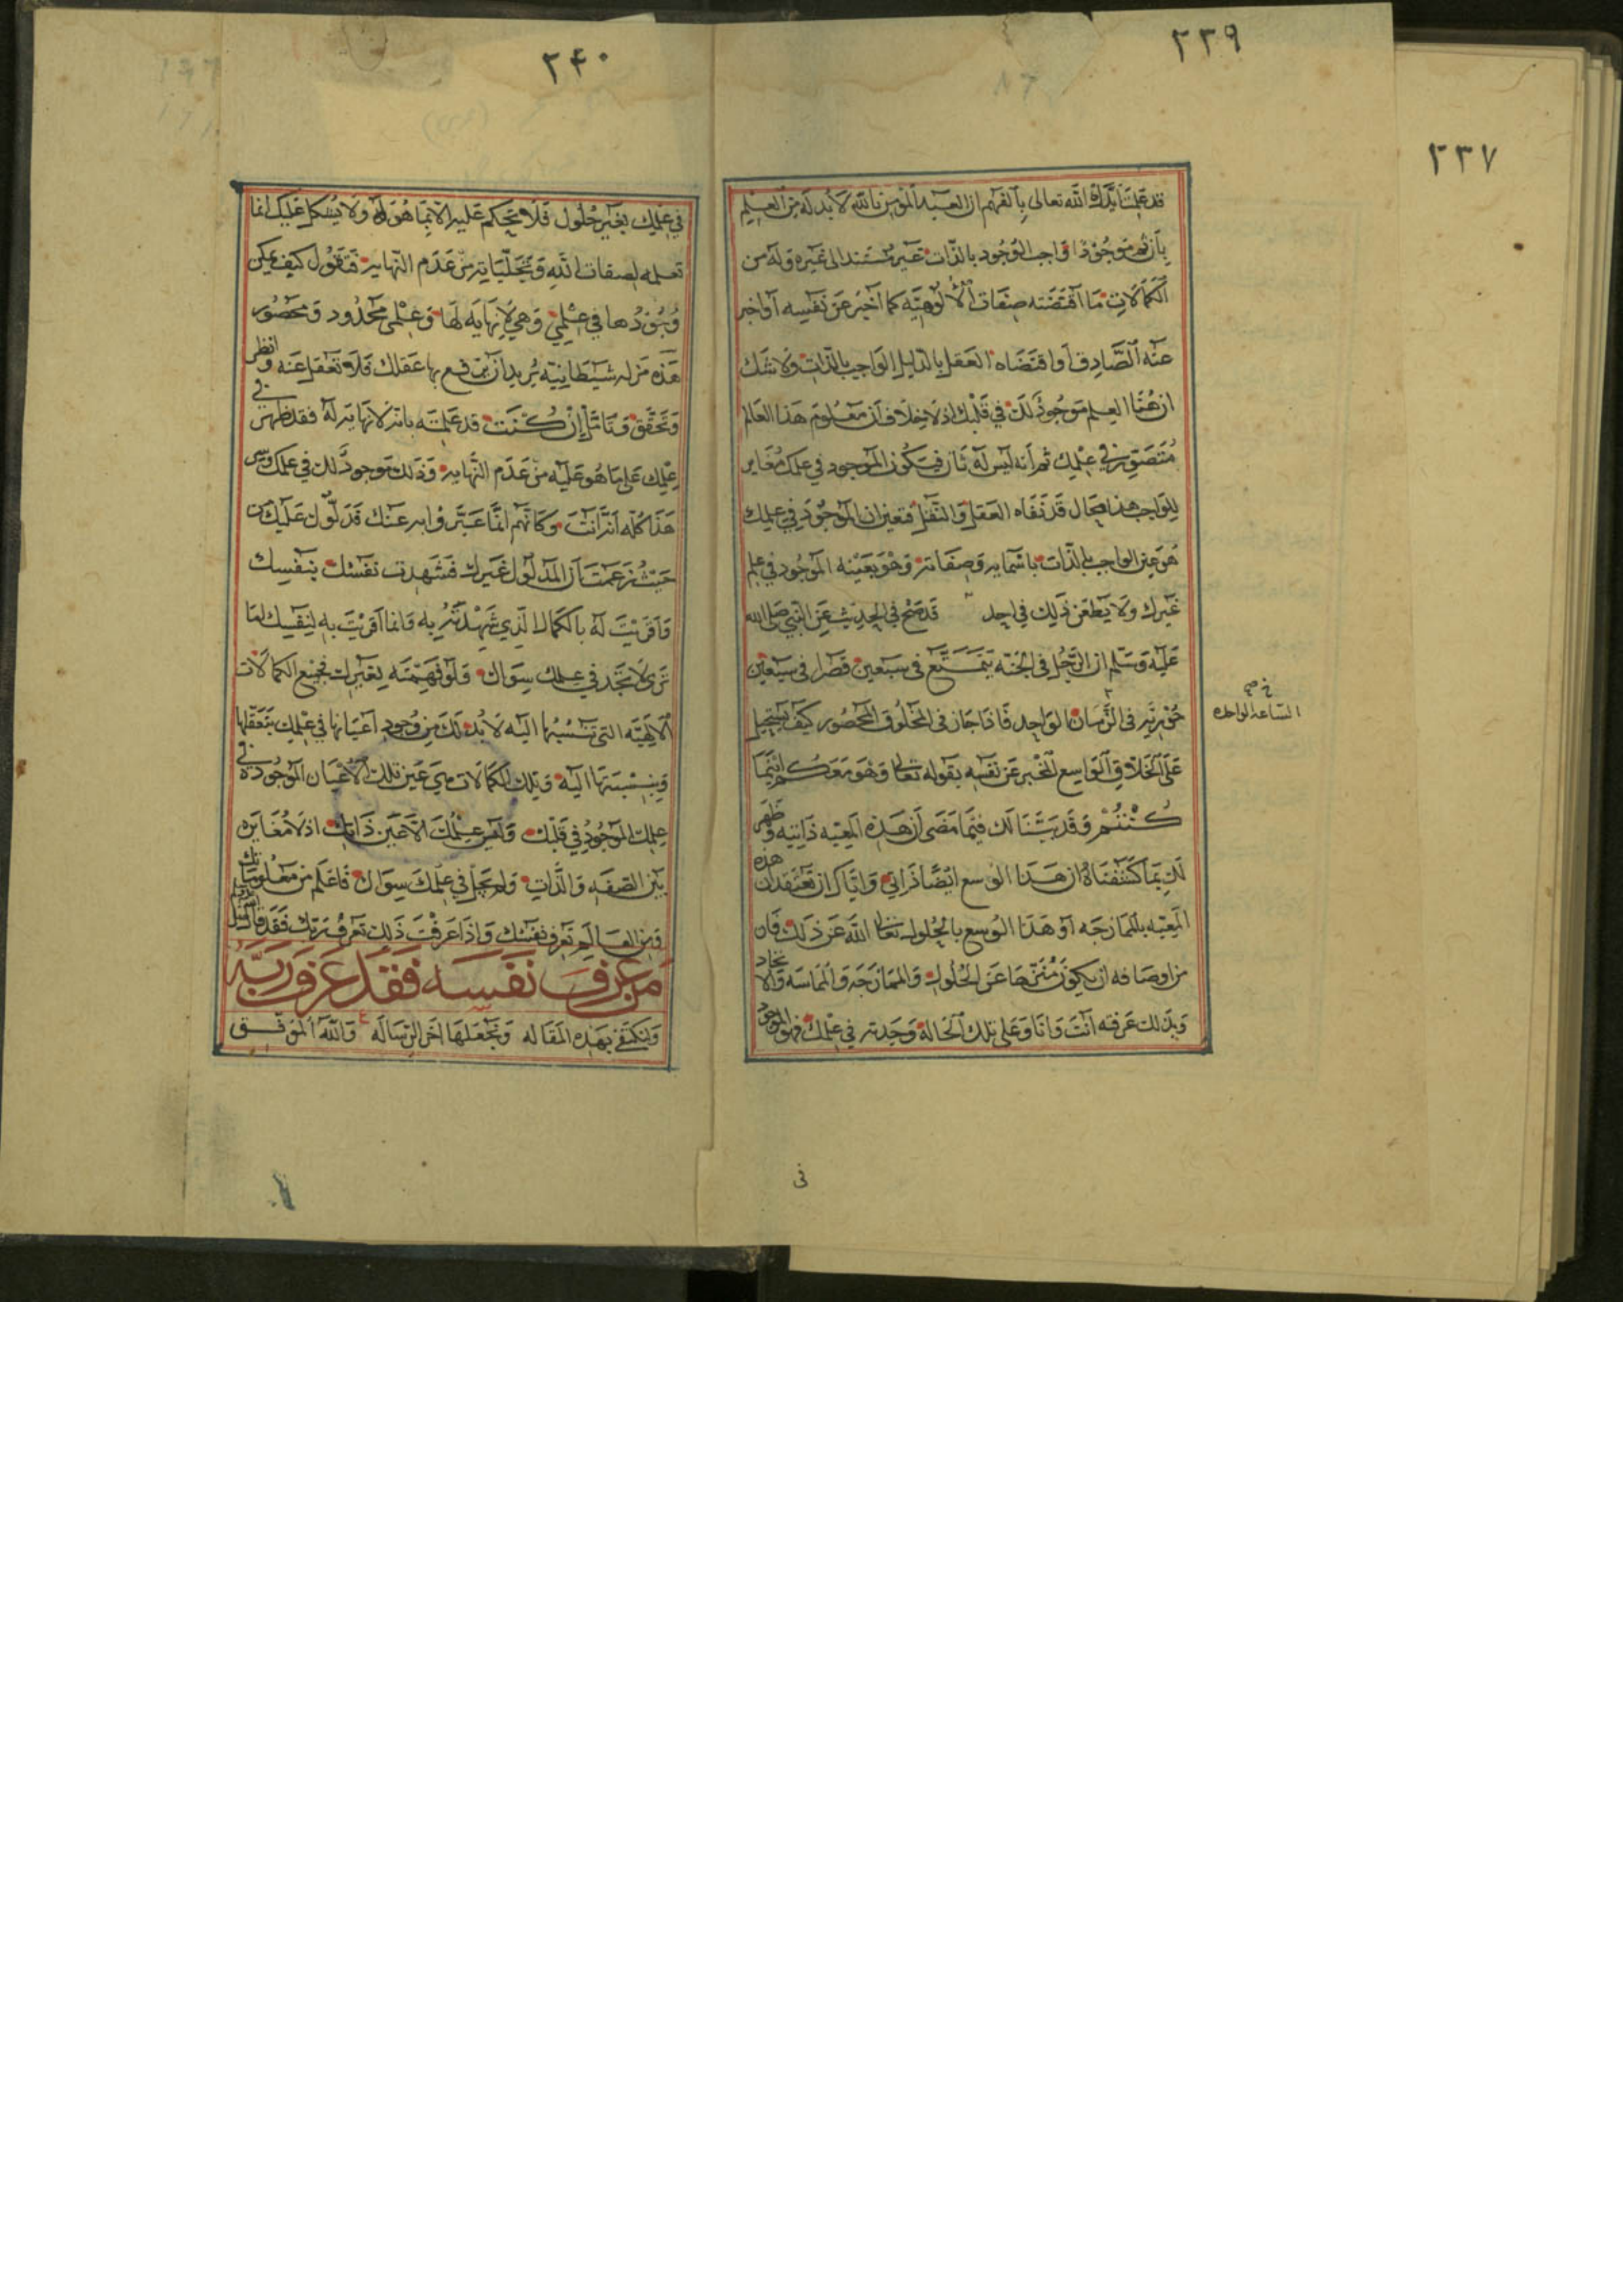 ٢٣٩
٢٣٧
قد علمت ايدك الله تعالى بالفهم ان العبد المؤمن بالله لا بد له من العلم
بأن ثم موجودا واجب الوجود بالذات غير مستند الى غيره وله من
الكمالات ما اقتضته صفات الألوهيه كما أخبر عن نفسه أو اخبر
عنه الصادق أو اقتضاه العقل بالدليل الواجب بالذات ولا شك
ان هذا العلم موجود لك في قلبك اذ لا خلاف أن معلوم هذا العالم
متصور في علمك ثم أنه ليس له ثان فيكون الموجود في علمك مغاير
للواجب هذا محال قد نفاه العقل والنقل فتعين ان الموجود في علمك
هو عين الواجب بالذات باسمايه وصفاته وهو بعينه الموجود في علم
غيرك ولا يطعن ذلك في احد قد صح في الحديث عن النبي صلى الله
عليه وسلم ان الرجل في الجنه يتمتع في سبعين قصرا في سبعين
حوريه في الزمان الواحد فاذا جاز في المخلوق المحصور كيف يستحيل
خ ص
الساعه الواحده
على الخلاق الواسع المخبر عن نفسه بقوله تعالى وهو معكم اينما
كنتم وقد بينا لك فيما مضى أن هذه المعيه ذاتيه وظهر
لك بما كشفناه ان هذا الوسع ايضا ذاتي واياك ان تعتقد ان هذه
المعيه بالممازجه أو هذا الوسع بالحلول تعالى الله عن ذلك فان
من اوصافه ان يكون منزها عن الحلول والممازجه والمماسه والاتحاد
وبذلك عرفته أنت وانا وعلى تلك الحاله وجدته في علمك فهو الموجود
في
٢٤٠
في علمك بغير حلول فلا تحكم عليه الا بما هو له ولا يشكل عليك انما
تعلمه لصفات الله وتجلياته من عدم النهايه فتقول كيف يمكن
وجودها في علمي وهي لا نهايه لها وعلمي محدود ومحصور
هذه مزله شيطانيه يريد أن يرفع بها عقلك فلا تغفل عنه وانظر
وتحقق وتأمل إن كنت قد علمته بانه لا نهايه له فقد ظهر في
علمك على ما هو عليه من عدم النهايه وذلك موجود لك في علمك وليس
هذا كله انت وكانهم انما عبروا به عنك قد لول عليك
حيث زعمت أن المدلول غيرك فشهدت نفسك بنفسك
واقريت له بالكمال الذي شهدته به وانما أقريت به لنفسك لما
ترى لا تجد في علمك سواك ولو فهمته بغيرك فجميع الكمالات
الالهيه التي تنسبها اليه لا بد لك من وجود أعيانها في علمك بتعقلها
وبنسبتها اليه وتلك الكمالات هي عين تلك الأعيان الموجوده في
علمك الموجود في قلبك وليس علمك الا عين ذاتك اذ لا مغايره
بين الصفه والذات ولم يحل في علمك سواك فاعلم من معلوماتك
ومن العالم تعرف نفسك واذا عرفت ذلك تعرف ربك فقد قال
من عرف نفسه فقد عرف ربه
ولنكتفي بهذه المقاله ونجعلها اخر الرساله والله الموفق